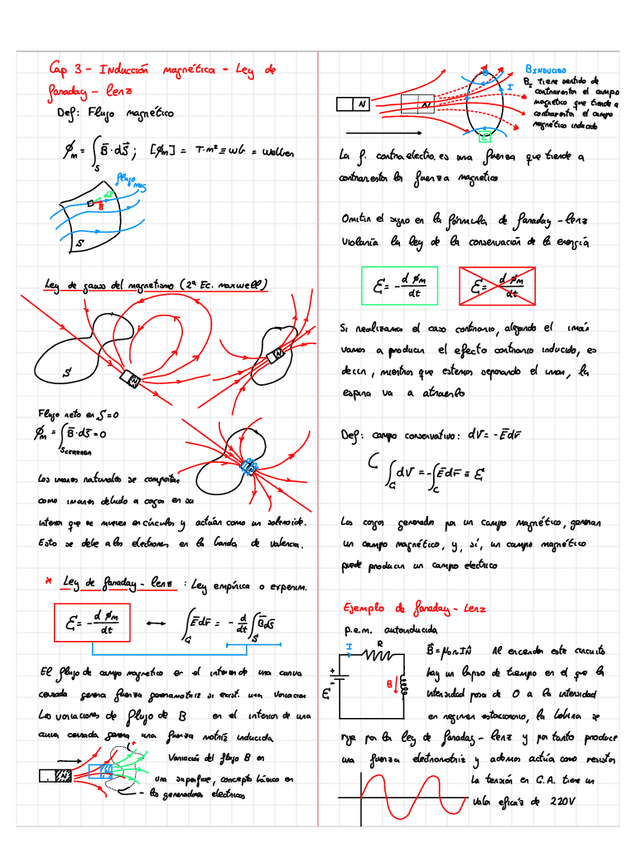 Cap 3 - Inducción magnética - Ley de
faraday - lenz
Def: Flujo magnético
Φm = ∫S B·dS ; [Φm] = T·m² ≡ wb = weber
flujo mag
B
S
Ley de gauss del magnetismo (2ª Ec. maxwell)
S
N
N
Flujo neto en S = 0
Φm = ∫S CERRADA B·dS = 0
Los imanes naturales se comportan
como imanes debido a cargas en su
interior que se mueven en círculos y actúan como un solenoide.
Esto se debe a los electrones en la banda de valencia.
* Ley de faraday - lenz : Ley empírica o experim.
Ɛ = - d Φm / dt ⟷ ∫G E dr = - d/dt ∫S B dS
El flujo de campo magnetico en el interior de una curva
cerrada genera fuerza si exist. una variacion
Las variaciones de flujo de B en el interior de una
curva cerrada genera una fuerza motriz inducida
Variación del flujo B en
una superficie, concepto básico en
los generadores electricos
N
N
I
BINDUCIDO
BI tiene sentido de
contrarrestar el campo
magnetico que tiende a
contrarrestar el campo
magnético inducido
Ɛ
La f. contraelectro. es una fuerza que tiende a
contrarrestar la fuerza magnetica
Omitir el signo en la fórmula de faraday - lenz
violaría la ley de la conservación de la energía
Ɛ = - d Φm / dt
Ɛ = d Φm / dt
Si realizamos el caso contrario, alejando el imán
vamos a producir el efecto contrario inducido, es
decir, mientras que estemos separando el iman, la
espira va a atraerlo
Def: campo conservativo: dV = - E dr
∫G dV = - ∫C E dr ≡ Ɛ
Las cargas generadas por un campo magnético, generan
un campo magnético, y, sí, un campo magnético
puede producir un campo electrico
Ejemplo de faraday - Lenz
p.e.m. autoinducida
I
R
+
-
Ɛ
B
L
B = μ₀ n I N Al encender este circuito
hay un lapso de tiempo en el que la
intensidad pasa de 0 a la intensidad
en regimen estacionario, la bobina se
rige por la ley de faraday - lenz y por tanto produce
una fuerza electromotriz y ademas actúa como resistor
La tensión en C.A. tiene un
valor eficaz de 220V